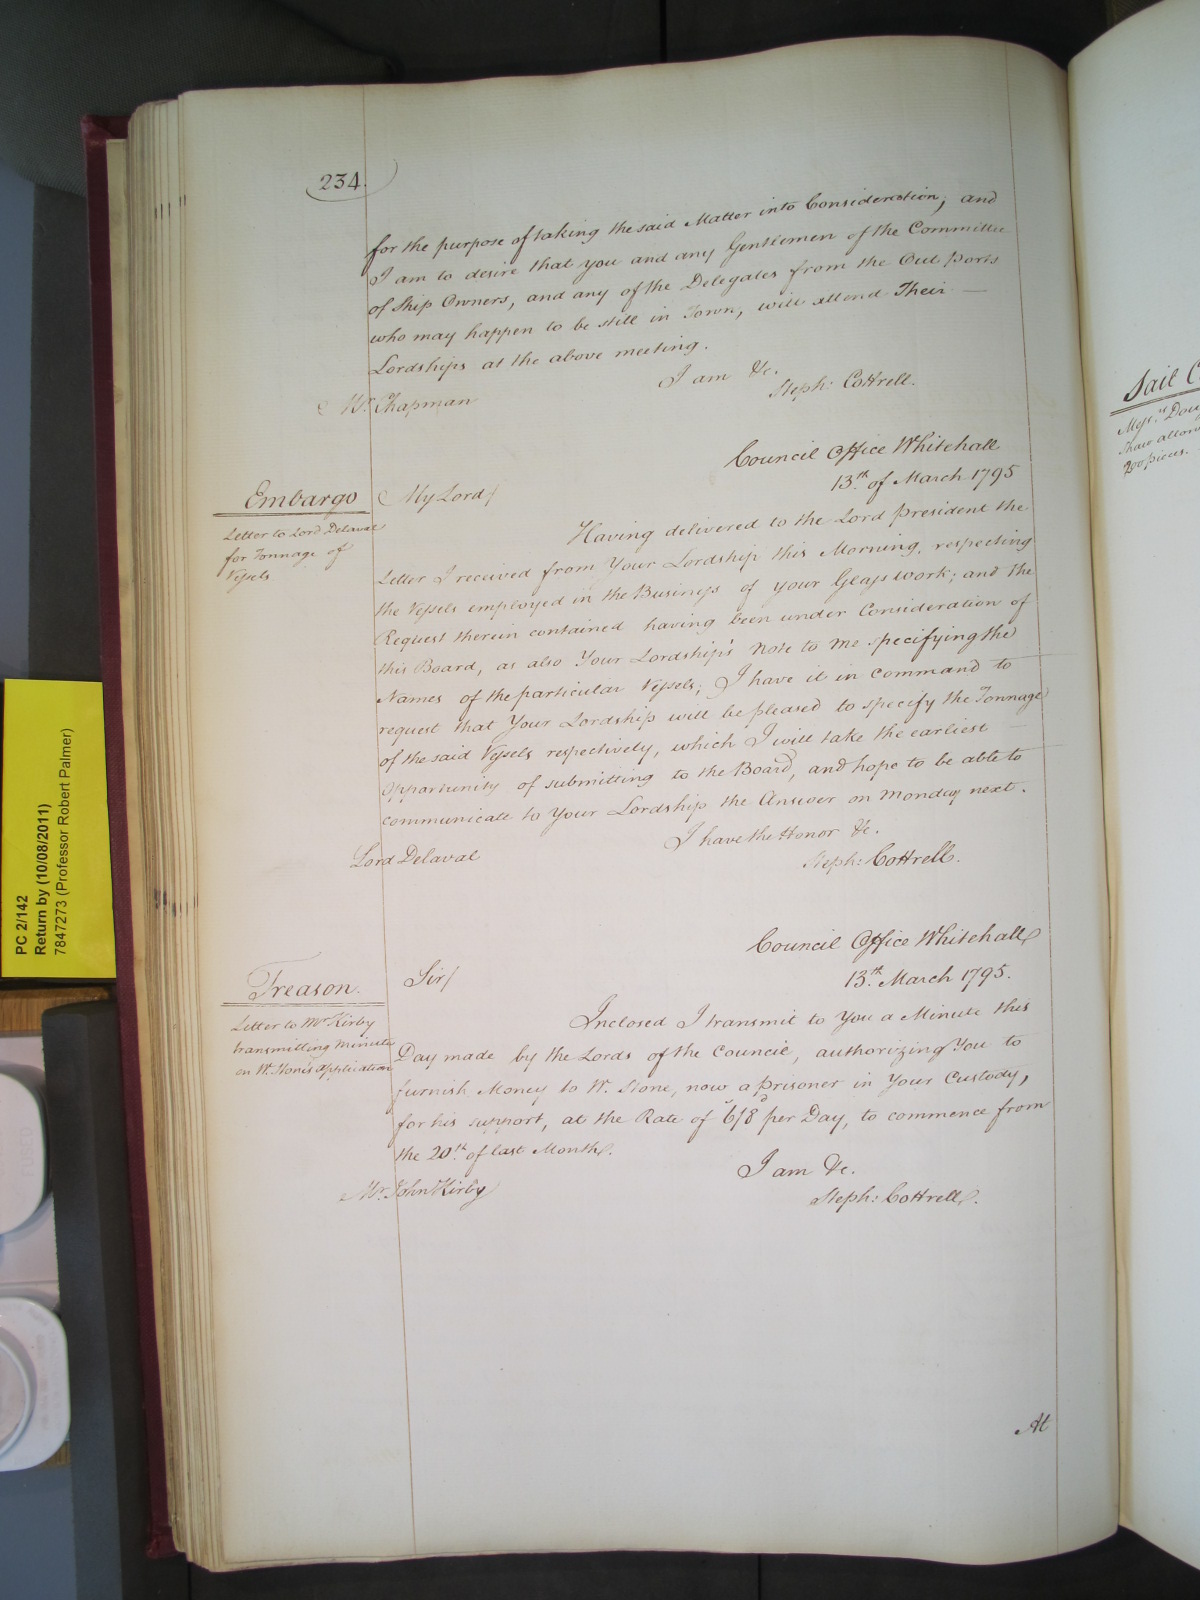 234.
for the purpose of taking the said Matter into Consideration, and
I am to desire that you and any Gentlemen of the Committee
of Ship Owners, and any of the Delegates from the Out ports
who may happen to be still in Town, will attend Their —
Lordships at the above meeting.
I am &c.
Steph: Cottrell.
Mr. Chapman
Council Office Whitehall
13th of March 1795
Embargo
Letter to Lord Delaval
for Tonnage of
Vessels.
My Lord/
Having delivered to the Lord President the
Letter I received from Your Lordship this Morning, respecting
the Vessels employed in the Business of your Glass work; and the
Request therein contained having been under Consideration of
this Board, as also Your Lordship's Note to me specifying the
Names of the particular Vessels; I have it in command to
request that Your Lordship will be pleased to specify the Tonnage
of the said Vessels respectively, which I will take the earliest
Opportunity of submitting to the Board, and hope to be able to
communicate to Your Lordship the Answer on Monday next.
I have the Honor &c.
Steph: Cottrell.
Lord Delaval
Council Office Whitehall
13th March 1795.
Treason.
Letter to Mr Kirby
transmitting Minute
on W. Stone's application
Sir/
Inclosed I transmit to You a Minute this
Day made by the Lords of the Council, authorizing You to
furnish Money to W. Stone, now a prisoner in Your Custody,
for his support, at the Rate of 6/8d per Day, to commence from
the 20th of last Month.
I am &c.
Steph: Cottrell.
Mr. John Kirby
At
Sail C
Messrs
PC 2/142
Return by (10/08/2011)
7847273 (Professor Robert Palmer)